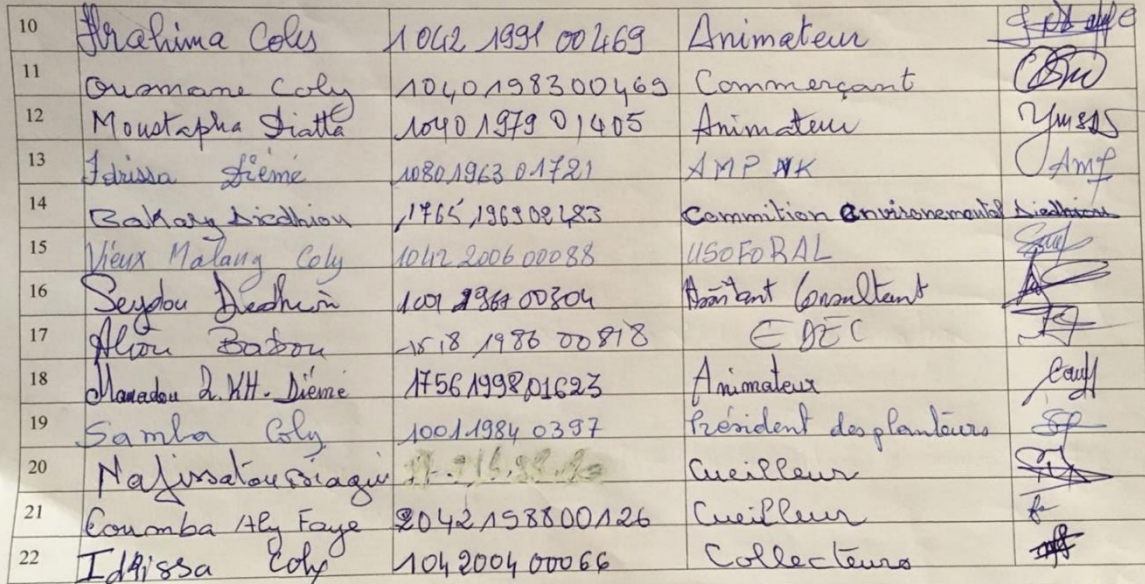 10 Ibrahima Coly 1042 1991 00469 Animateur
11 Ousmane Coly 1040198300469 Commerçant
12 Moustapha Diatta 1040197901405 Animateur
13 Idrissa Diémé 1080196301721 AMP NK Amf
14 Bakary Diedhiou 1765196902483 Commition Environemental Diedhiou
15 Vieux Malang Coly 1042200600088 USOFORAL
16 Seydou Diedhiou 1001 1967 00304 Assistant Consultant
17 Aliou Badou 1518 1986 00818 EDEC
18 Mamadou L.KH. Diémé 1756199801623 Animateur
19 Samba Coly 10011984 0397 Président des planteurs
20 Nafissatou Cueilleur
21 Coumba Aly Faye 2042198800126 Cueilleur
22 Idrissa Coly 1042004 00066 Collecteurs